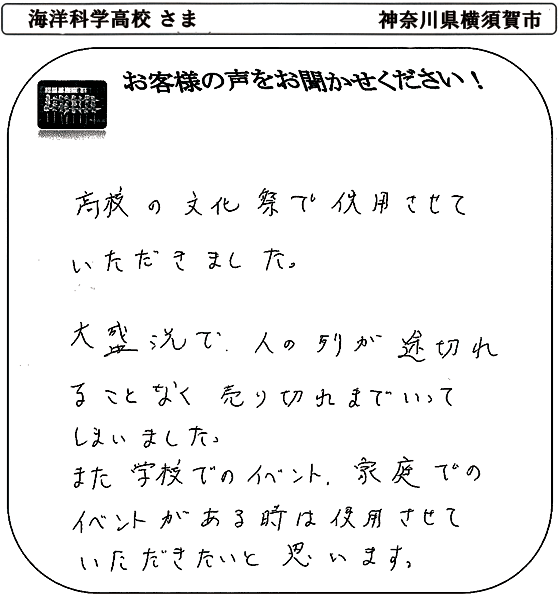 海洋科学高校 さま
神奈川県横須賀市
お客様の声をお聞かせください！
高校の文化祭で使用させて
いただきました。
大盛況で、人の列が途切れ
ることなく売り切れまでいって
しまいました。
また学校でのイベント、家庭での
イベントがある時は使用させて
いただきたいと思います。